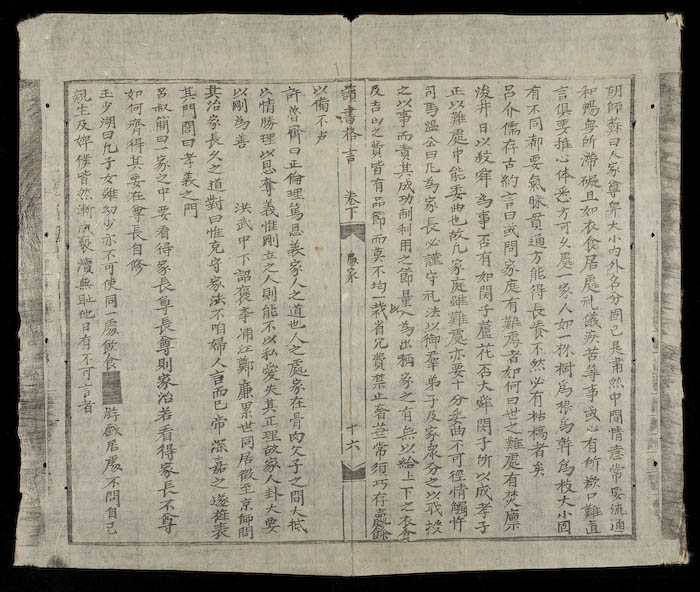 胡師蘇曰人家尊卑大小內外名分固已是肅然中間情意常要流通
和暢無所滯礙且如衣食居處礼儀疾苦等事或心有所欲口難直
言俱要推心体悉方可久處一家人如一株樹為根為幹為枝大小固
有不同都要氣脉貫通方能得長養不然必有枯槁者矣
呂介儒存古約言曰或問家庭有難處者如何曰世之難處有焚廩
浚井日以殺舜為事否有如閔子蘆花否大舜閔子所以成孝子
正以難處中能委曲也故凡家庭雖難處亦要十分委曲不可徑情觸忤
司馬溫公曰凡為家長必謹守礼法以御羣弟子及家衆分之以職授
之以事而責其成功制利用之節量入為出稱家之有無以給上下之衣食
及吉凶之費皆有品節而莫不均一裁省冗費禁止奢華常須巧存贏餘
讀書格言 卷下 處家 十六
以備不虞
許魯齋曰正倫理篤恩義家人之道也人之處家在骨肉父子之間大抵
以情勝理以恩奪義惟剛立之人則能不以私愛失其正理故家人卦大要
以剛為善 洪武中下詔褒奉浦江鄭廉累世同居徵至京師問
其治家長久之道對曰惟克守家法不咱婦人言而已帝深嘉之遂旌表
其門閭曰孝義之門
呂叔簡曰一家之中要看得家長尊長尊則家治若看得家長不尊
如何齊得其要在尊長自修
王少湖曰凢子女雖幼少亦不可使同一處飲食 嬉戲居處不問自己
親生及婢僕皆然漸風褻瀆無恥他日有不可言者